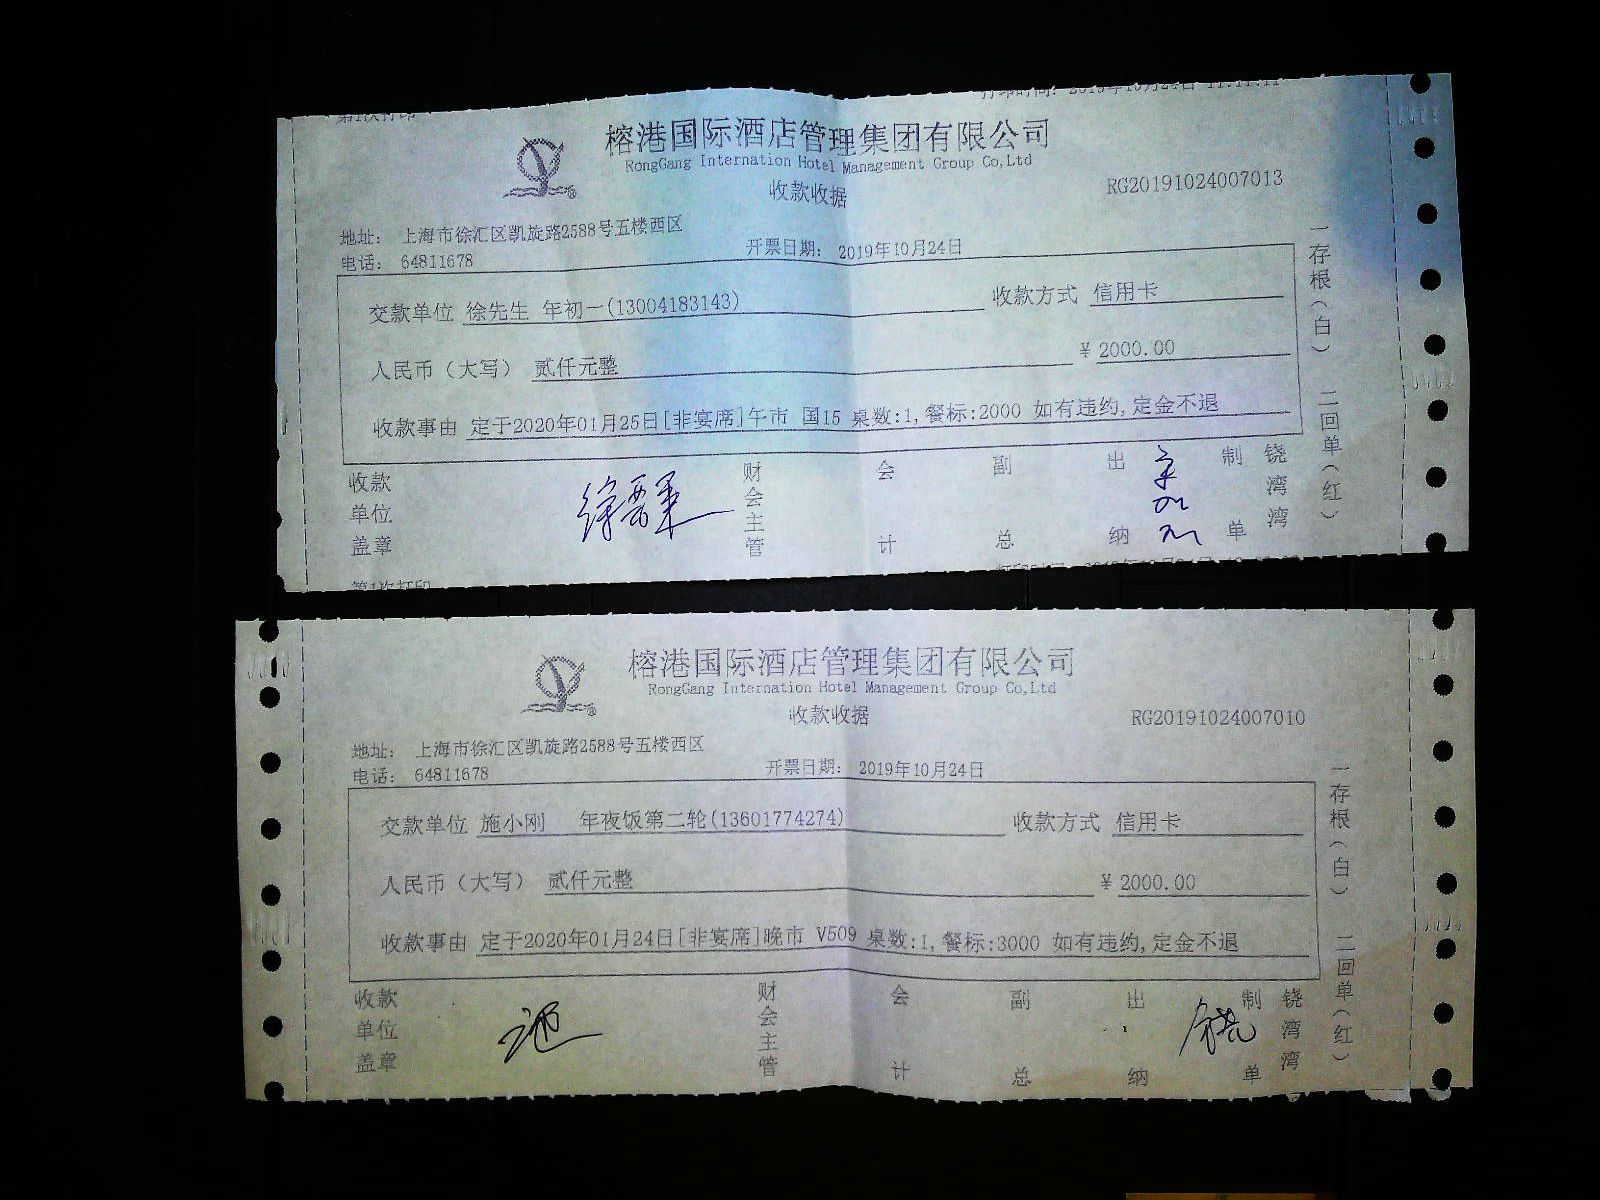 榕港国际酒店管理集团有限公司
RongGang Internation Hotel Management Group Co,Ltd
收款收据
RG20191024007013
地址： 上海市徐汇区凯旋路2588号五楼西区
电话： 64811678
开票日期： 2019年10月24日
交款单位 徐先生 年初一(13004183143) 收款方式 信用卡
人民币（大写） 贰仟元整 ¥ 2000.00
收款事由 定于2020年01月25日[非宴席]午市 国15 桌数:1,餐标:2000 如有违约,定金不退
一存根（白） 二回单（红）
收款单位盖章 财会主管 会计 副总 出纳 制单 铙湾湾
第1次打印
榕港国际酒店管理集团有限公司
RongGang Internation Hotel Management Group Co,Ltd
收款收据
RG20191024007010
地址： 上海市徐汇区凯旋路2588号五楼西区
电话： 64811678
开票日期： 2019年10月24日
交款单位 施小刚 年夜饭第二轮(13601774274) 收款方式 信用卡
人民币（大写） 贰仟元整 ¥ 2000.00
收款事由 定于2020年01月24日[非宴席]晚市 V509 桌数:1,餐标:3000 如有违约,定金不退
一存根（白） 二回单（红）
收款单位盖章 财会主管 会计 副总 出纳 制单 铙湾湾